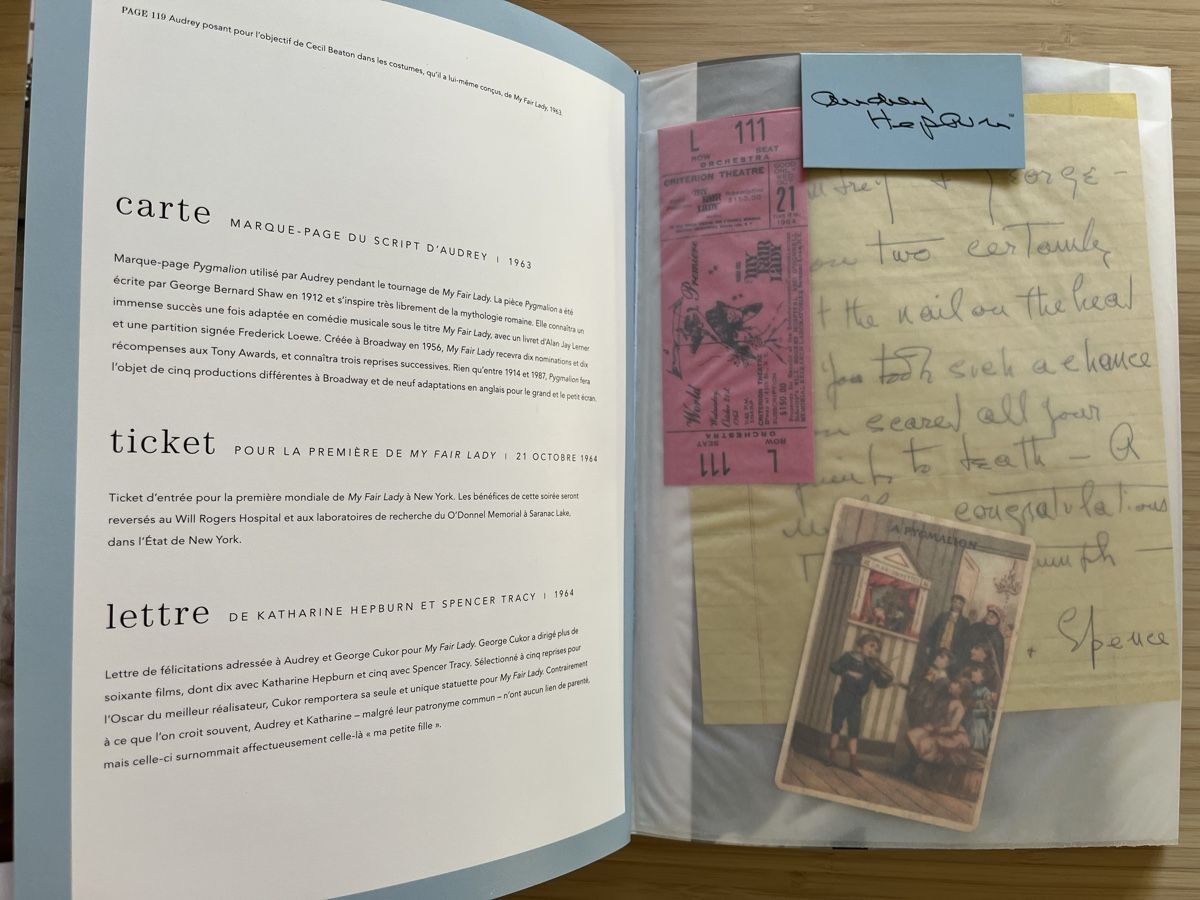 PAGE 119 Audrey posant pour l'objectif de Cecil Beaton dans les costumes, qu'il a lui-même conçus, de My Fair Lady, 1963.
carte MARQUE-PAGE DU SCRIPT D'AUDREY | 1963
Marque-page Pygmalion utilisé par Audrey pendant le tournage de My Fair Lady. La pièce Pygmalion a été
écrite par George Bernard Shaw en 1912 et s'inspire très librement de la mythologie romaine. Elle connaîtra un
immense succès une fois adaptée en comédie musicale sous le titre My Fair Lady, avec un livret d'Alan Jay Lerner
et une partition signée Frederick Loewe. Créée à Broadway en 1956, My Fair Lady recevra dix nominations et dix
récompenses aux Tony Awards, et connaîtra trois reprises successives. Rien qu'entre 1914 et 1987, Pygmalion fera
l'objet de cinq productions différentes à Broadway et de neuf adaptations en anglais pour le grand et le petit écran.
ticket POUR LA PREMIÈRE DE MY FAIR LADY | 21 OCTOBRE 1964
Ticket d'entrée pour la première mondiale de My Fair Lady à New York. Les bénéfices de cette soirée seront
reversés au Will Rogers Hospital et aux laboratoires de recherche du O'Donnel Memorial à Saranac Lake,
dans l'État de New York.
lettre DE KATHARINE HEPBURN ET SPENCER TRACY | 1964
Lettre de félicitations adressée à Audrey et George Cukor pour My Fair Lady. George Cukor a dirigé plus de
soixante films, dont dix avec Katharine Hepburn et cinq avec Spencer Tracy. Sélectionné à cinq reprises pour
l'Oscar du meilleur réalisateur, Cukor remportera sa seule et unique statuette pour My Fair Lady. Contrairement
à ce que l'on croit souvent, Audrey et Katharine – malgré leur patronyme commun – n'ont aucun lien de parenté,
mais celle-ci surnommait affectueusement celle-là « ma petite fille ».
Audrey
Hepburn™
L 111
ROW SEAT
ORCHESTRA
CRITERION THEATRE
MY
FAIR
LADY
$150.00
21
1964
World Premiere
MY
FAIR
LADY
Wednesday
CRITERION THEATRE
$150.00
ORCHESTRA
ROW SEAT
L 111
George –
two certainly
the nail on the head
You took such a chance
scared all your
to death – A
congratulations
Spence
A PYGMALION